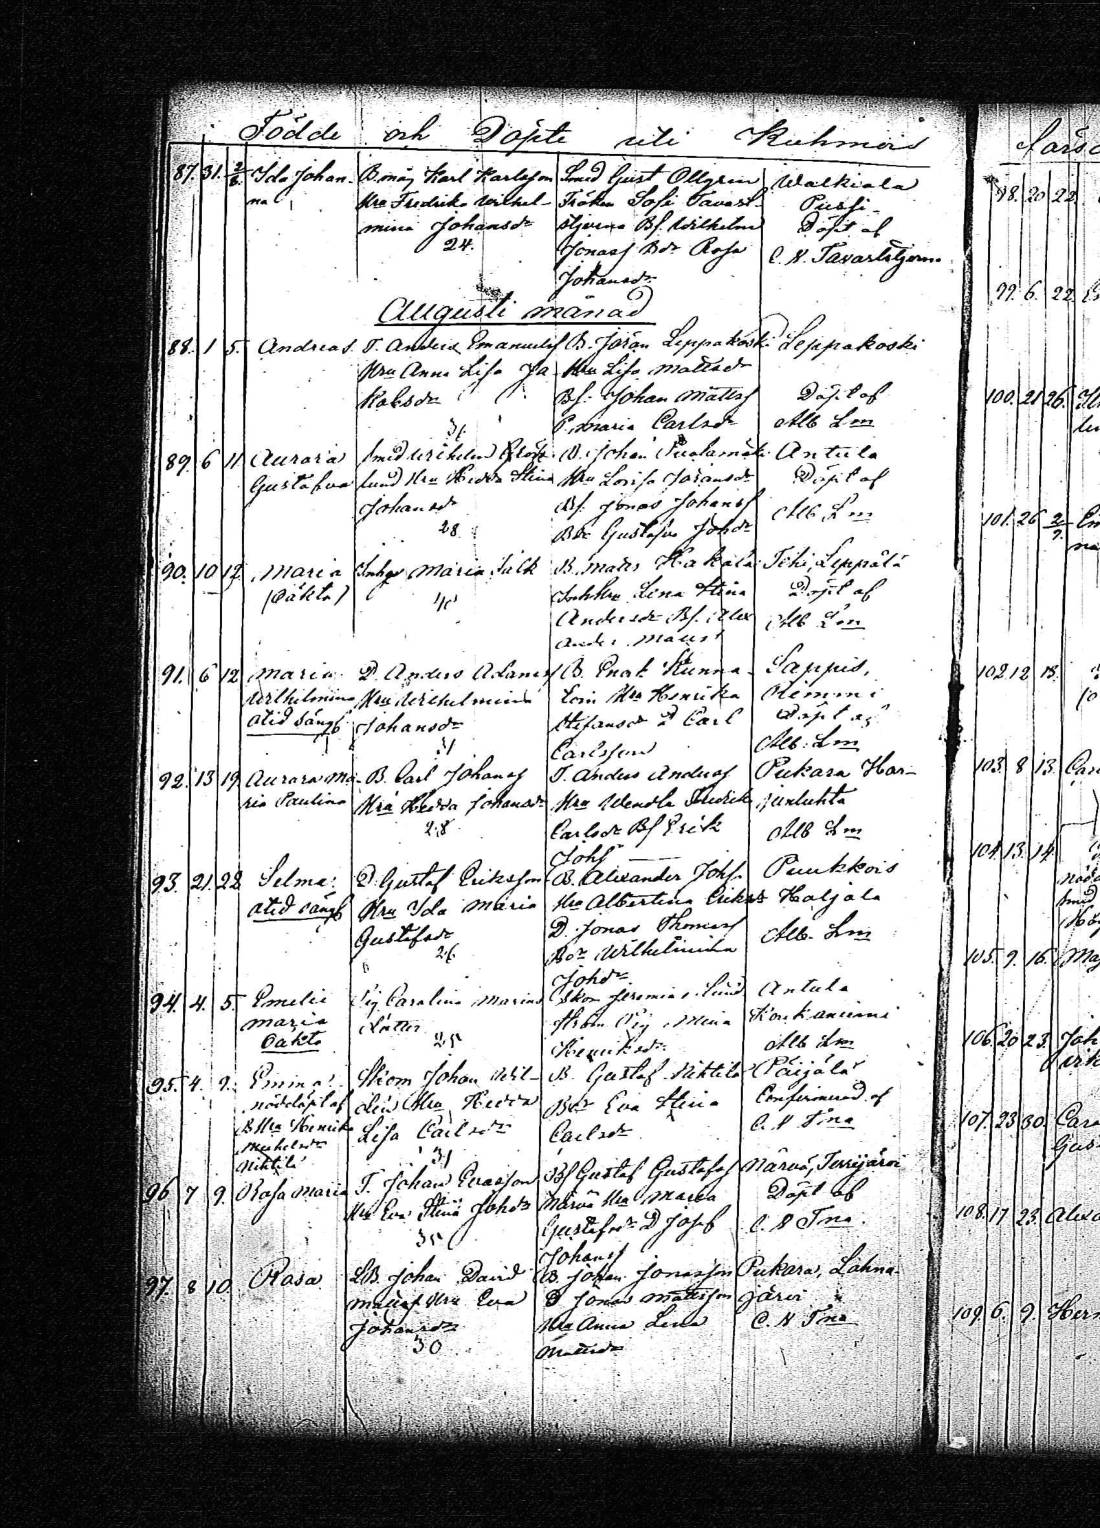 Födde och Döpte uti Kuhmois
87. 31. 2/8. Ida Johan-
na
B. måg Karl Karlsson
Hru Fredrika Wilhel-
mina Johansdr
24.
Smed Gust Ollgren
Fröken Sofi Tavast-
stjerna Bf. Wilhelm
Jonass Bdr Rosa
Johansdr
Walkiala
Pussi
Döpt af
C. N. Tavaststjerna
Augusti månad
88. 1 5. Andreas
T. Anders Emanuelss
Hru Anna Lisa Ja
kobsdr
31
B. Jöran Leppäkoski
Hru Lisa Mattsdr
Bf. Johan Mattss
P. Maria Carlsdr
Leppäkoski
Döpt af
Alb Lm
89. 6 11. Aurora
Gustafva
Smed Wilhelm
lund Hru Hedda Stina
Johansdr
28
B. Johan
Hru Lovisa Jöransdr
Bf. Jonas Johanss
Bdr Gustafva Johdr
Antula
Döpt af
Alb Lm
90. 10 12 Maria
(oäkta)
Inhys Maria Falk
40
B. Matts Hakala
Inh Hru Lena Stina
Andersdr Bf. Alex
ander Mattss
Tehi, Leppälä
Döpt af
Alb Lm
91. 6 12 Maria
Wilhelmina
atid sängf
D. Anders Adamss
Hru Wilhelmina
Johansdr
31
B. Enok Kunna-
Hru Henrika
Stefansdr D Carl
Carlsson
Sappis,
Niemmi
Döpt af
Alb. Lm
92. 13 19 Aurora Ma-
ria Paulina
B. Carl Johanss
Hru Hedda Johansdr
28
T. Anders Anderss
Hru Wendla Fredrik
Carlsdr Bf Erik
Johss
Pukara Har-
junluhta
Alb Lm
93. 21. 22 Selma
atid sängf
D. Gustaf Eriksson
Hru Ida Maria
Gustafsdr
26
B. Alexander Johss
Hru Albertina Eriksd
D. Jonas Thomass
Bdr Wilhelmina
Johdr
Puukkois
Haljala
Alb. Lm
94. 4. 5. Emelie
Maria
oäkta
Pig Carolina Marias
dotter
25
Skom Jeremias Lind
ström Pig. Mina
Henriksdr
Antula
Koukaniemi
Alb Lm
95. 4. 9. Emma
nöddöpt af
B Hru Henrika
Mickelsdr
Niktilä
Skom Johan Wil-
dén Hru Hedda
Lisa Carlsdr
31
B. Gustaf Niktilä
Bdr Eva Stina
Carlsdr
Päijälä
Confirmerad af
C. N Tna
96 7 9. Rosa Maria
T. Johan Evasson
Hru Eva Stina Johdr
35
Bf Gustaf Gustafss
Närvä Hru Maria
Gustafsdr D Josef
Johanss
Närvä, Terrijärvi
Döpt af
C. N Tna
97. 8 10. Rosa
LB. Johan David
Mattss Hru Eva
Johansdr
30
B. Johan Jonasson
D Jonas Mattsson
Hru Anna Lena
Mattsdr
Pukara, Löhna-
järvi
C. N Tna
98. 20 22.
99. 6. 22.
100. 21 26.
101. 26 2/9.
102 12 13.
103. 8 13.
104. 13. 14.
105. 9. 16.
106. 20 23.
107. 23 30.
108. 17 23.
109. 6. 9.